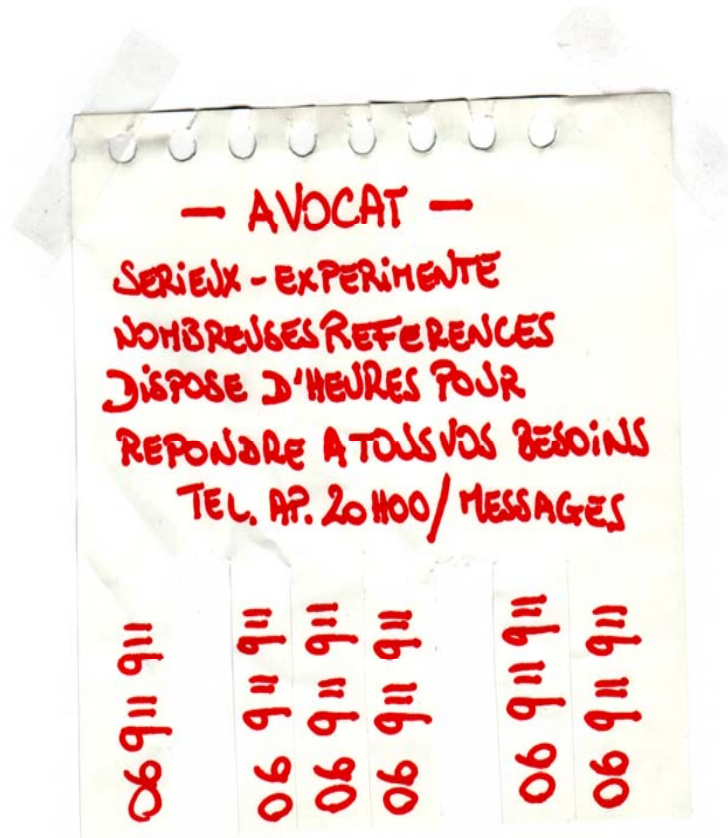 — AVOCAT —
SERIEUX - EXPERIMENTE
NOMBREUSES REFERENCES
DISPOSE D'HEURES POUR
REPONDRE A TOUS VOS BESOINS
TEL. AP. 20H00/MESSAGES
06 911 911
06 911 911
06 911 911
06 911 911
06 911 911
06 911 911